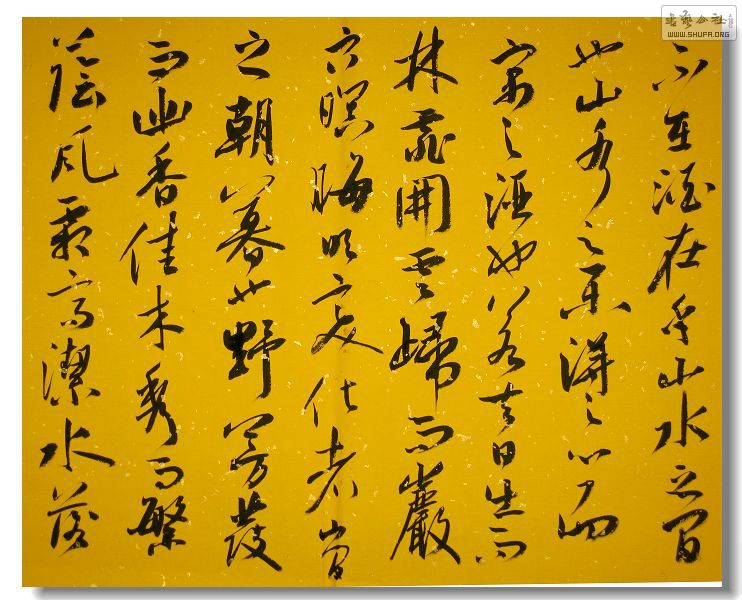 不在酒在乎山水之間
也山水之樂得之心而
寓之酒也若夫日出而
林霏開雲歸而巖
穴暝晦明變化者山間
之朝暮也野芳發
而幽香佳木秀而繁
蔭風霜高潔水落
书艺公社
WWW.SHUFA.ORG